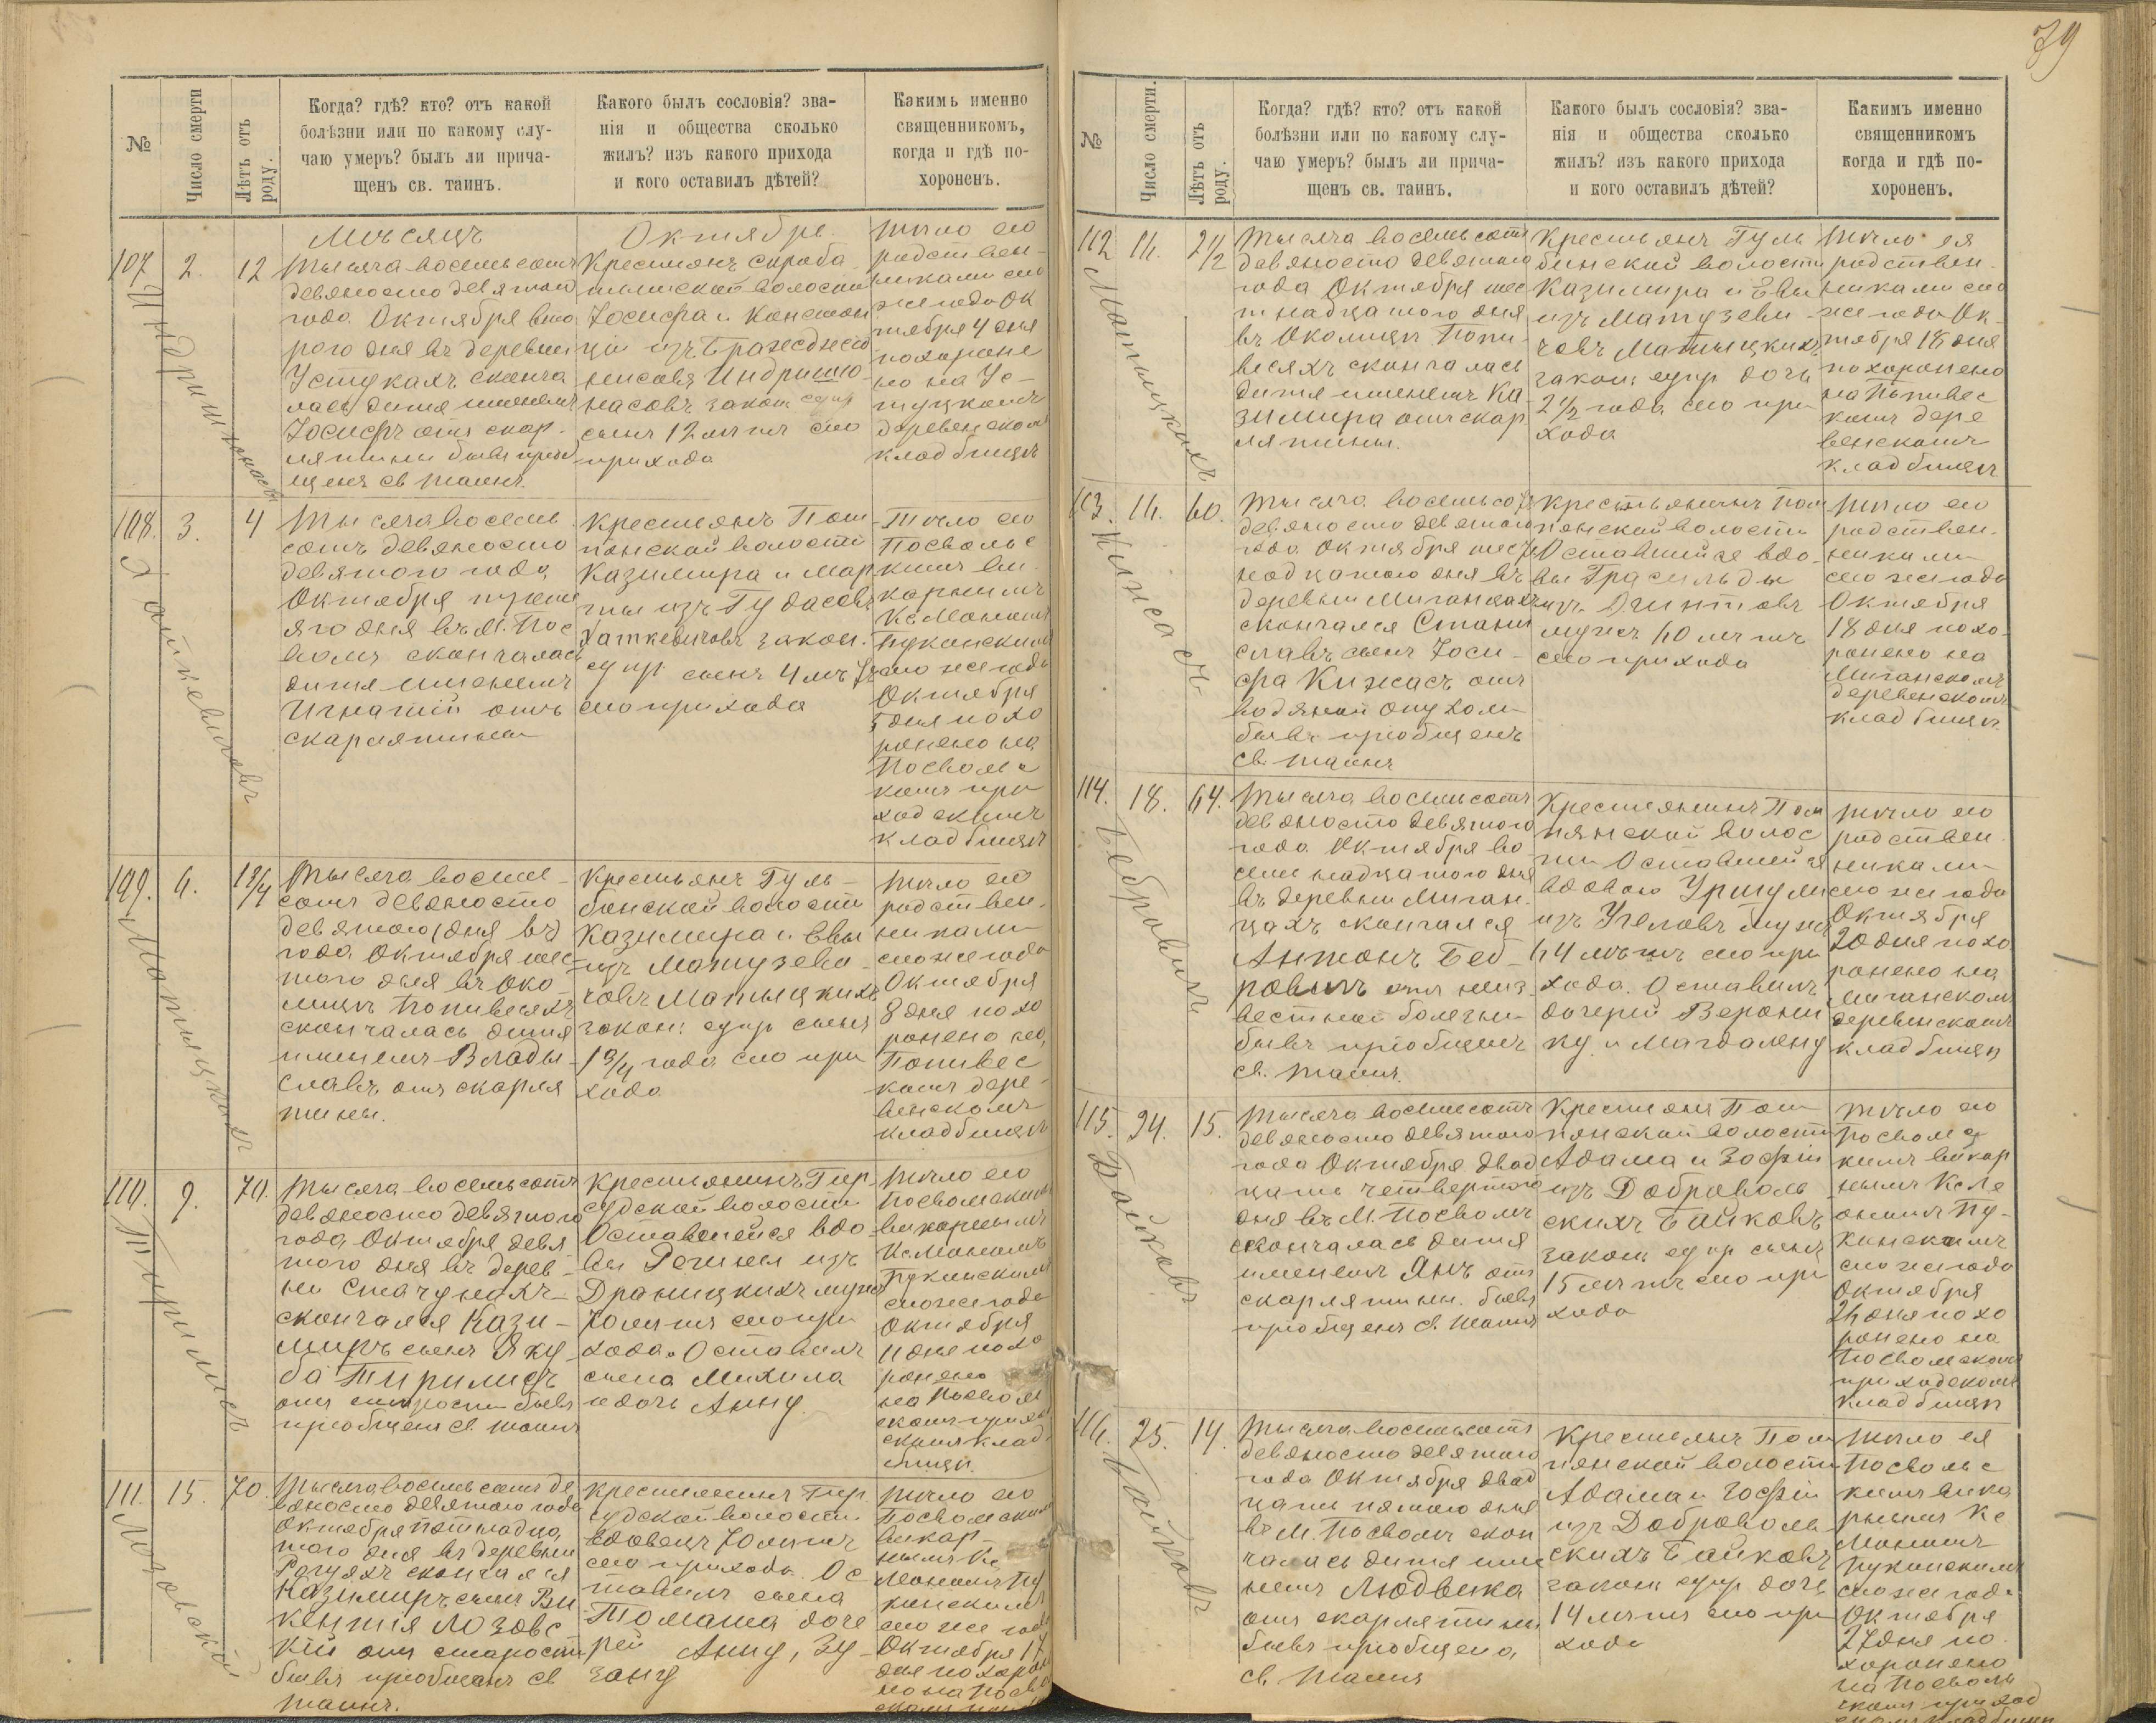 79
№
Число смерти
Лѣтъ отъ роду.
Когда? гдѣ? кто? отъ какой
болѣзни или по какому слу-
чаю умеръ? былъ ли прича-
щенъ св. таинъ.
Какого былъ сословія? зва-
нія и общества сколько
жилъ? изъ какого прихода
и кого оставилъ дѣтей?
Какимъ именно
священникомъ,
когда и гдѣ по-
хороненъ.
Мѣсяцъ
Октябрь
107
2.
12
Тысяча восемьсотъ
девяносто девятаго
года Октября вто
рого дня въ деревни
Устукахъ сконча
лась дитя именемъ
Іосифъ отъ скар-
лятины бывъ
св таинъ.
Крестьянъ
волости
Іосифа и Констан
ціи изъ
закон супр
сынъ 12 лѣтъ сего
прихода
тѣло его
родствен-
никами сего
же года Ок
тября 4 дня
похороне
но на Ус-
тукскомъ
деревенском
кладбищѣ
108.
3.
4
Тысяча восемь
сотъ девяносто
девятого года
Октября третья
яго дня въ М. Пос
волѣ скончалась
дитя именемъ
Игнатій отъ
скарлятины
Крестьянъ Пом-
пянской волости
Казимира и Мар
ты изъ Гудасовъ
Хаткевичовъ закон.
супр сынъ 4 лѣтъ
сего прихода
Тѣло его
Посвольс
кимъ ви
карнымъ
Кс Мономъ
Пуконскимъ
сего же года
Октября
5 дня похо
ронено на
Посвольс
комъ при
ходскимъ
кладбищѣ
Хаткевичовъ
109.
6.
1 3/4
Тысяча восемь
сотъ девяносто
девятого (дня въ)
года Октября шес
того дня въ око
лицѣ Попивесяхъ
скончалась дитя
именемъ Влады
славъ отъ скарля
тины.
Крестьянъ Гуль-
бинской волости
Казимира и Евы
изъ Матузеви-
човъ Матыцкихъ
закон. супр. сынъ
1 3/4 года сего при
хода
тѣло его
родствен-
никами
сего же года
Октября
8 дня похо
ронено на
Попивес
комъ дере-
венскомъ
кладбищѣ
Матыцкихъ
110.
9.
70.
Тысяча восемьсотъ
девяносто девятого
года Октября девя
того дня въ дерев-
ни Стачунахъ
скончался Кази-
миръ сынъ Яку
ба Тирилисъ
отъ старости бывъ
пріобщенъ св. таинъ
Крестьянинъ Гир-
судской волости
Оставшейся вдо-
вы Регины изъ
Драницкихъ мужъ
70 лѣтъ сего при
хода. Оставилъ
сына Михила
и дочь Анну.
тѣло его
Посвольскимъ
викарнымъ
Кс Мономъ
Пуконскимъ
сего же года
Октября
11 дня похо
ронено
на Посволь
скомъ
скомъ клад
бищѣ.
Тирилисъ
111.
15.
70.
Тысяча восемьсотъ де
вяносто девятого года
Октября пятнадца
того дня въ деревни
скончался
Казимиръ сынъ Ви
кентія Лозовс
кій отъ старости
бывъ пріобщенъ св
таинъ.
Крестьянинъ Гир
судской волости
вдовецъ 70 лѣтъ
сего прихода. Ос
тавилъ сына
Томаша доче
рей Анну, Зу-
занну
тѣло его
Посвольскимъ
викар-
нымъ Кс
Мономъ Пу
конскимъ
сего же года
Октября 17
дня похоро
но на Посв
Лозовскій
№
Число смерти.
Лѣтъ отъ роду.
Когда? гдѣ? кто? отъ какой
болѣзни или по какому слу-
чаю умеръ? былъ ли прича-
щенъ св. таинъ.
Какого былъ сословія? зва-
нія и общества сколько
жилъ? изъ какого прихода
и кого оставилъ дѣтей?
Какимъ именно
священникомъ
когда и гдѣ по-
хороненъ.
112
16.
2 1/2
Тысяча восемьсотъ
девяносто девятого
года Октября шес
тнадцатого дня
въ Околицѣ Попи-
весяхъ скончалась
дитя именемъ Ка-
зимира отъ скар
лятины.
Крестьянъ Гуль
бинской волости
Казимира и Евы
изъ Матузеви-
човъ Матыцкихъ
закон. супр дочь
2 1/2 года сего при
хода
тѣло ея
родствен-
никами сего
же года Ок-
тября 18 дня
похоронено
на Попивес
комъ дере
венскомъ
кладбищѣ
Матыцкихъ
113.
16.
60.
Тысяча восемьсотъ
девяносто девятого
года Октября шест
надцатого дня въ
деревни Миганцахъ
скончался Стани
славъ сынъ Іоси-
фа Кижасъ отъ
водяной опухоли
бывъ пріобщенъ
св. таинъ
Крестьянинъ Пом
пянской волости
Оставшейся вдо-
вы Грасильды
изъ
мужъ 60 лѣтъ
сего прихода
тѣло его
родствен-
никами
сего же года
Октября
18 дня похо-
ронено на
Миганскомъ
деревенскомъ
кладбищѣ.
Кижасъ
114.
18.
64.
Тысяча восемьсотъ
девяносто девятого
года Октября во
семнадцатого дня
въ деревни Миган-
цахъ скончался
Антонъ Бед-
ровичъ отъ неиз-
вестной болезни
бывъ пріобщенъ
св. таинъ.
Крестьянинъ Пом
пянской волос
ти Оставшейся
вдовою Уршули
изъ Угеловъ мужъ
64 лѣтъ сего при
хода. Оставилъ
дочерей Верони
ку и Магдалену
тѣло его
родствен-
никами
сего же года
Октября
20 дня похо
ронено на
Миганскомъ
деревенскомъ
кладбищѣ
115.
24.
15.
Тысяча восемьсотъ
девяносто девятого
года Октября двад
цать четвертого
дня въ М. Посволѣ
скончалась дитя
именемъ Янъ отъ
скарлятины. бывъ
пріобщенъ св. таинъ
Крестьянъ Пом-
пянской волости
Адама и Зофіи
изъ Доброволь
скихъ Байковъ
закон. супр сынъ
15 лѣтъ сего при
хода
тѣло его
Посвольс
кимъ викар
нымъ Кс Мо
ономъ Пу-
конскимъ
сего же года
Октября
26 дня похо
ронено на
Посвольскомъ
приходскомъ
кладбищѣ
Байковъ
116.
25.
14.
Тысяча восемьсотъ
девяносто девятого
года Октября двад
цать пятого дня
въ М. Посволѣ скон
чалась дитя име
немъ Людвика
отъ скарлятины
бывъ пріобщена
св. таинъ
Крестьянъ Пом
пянской волости
Адама и Зофіи
изъ Доброволь-
скихъ Байковъ
закон. супр. дочь
14 лѣтъ сего при
хода
тѣло ея
Посвольс
кимъ вика
рнымъ Кс
Мономъ
Пуконскимъ
сего же года
Октября
27 дня по
хоронено
на Посволь
скомъ приход
скомъ кладбищѣ
Байковъ